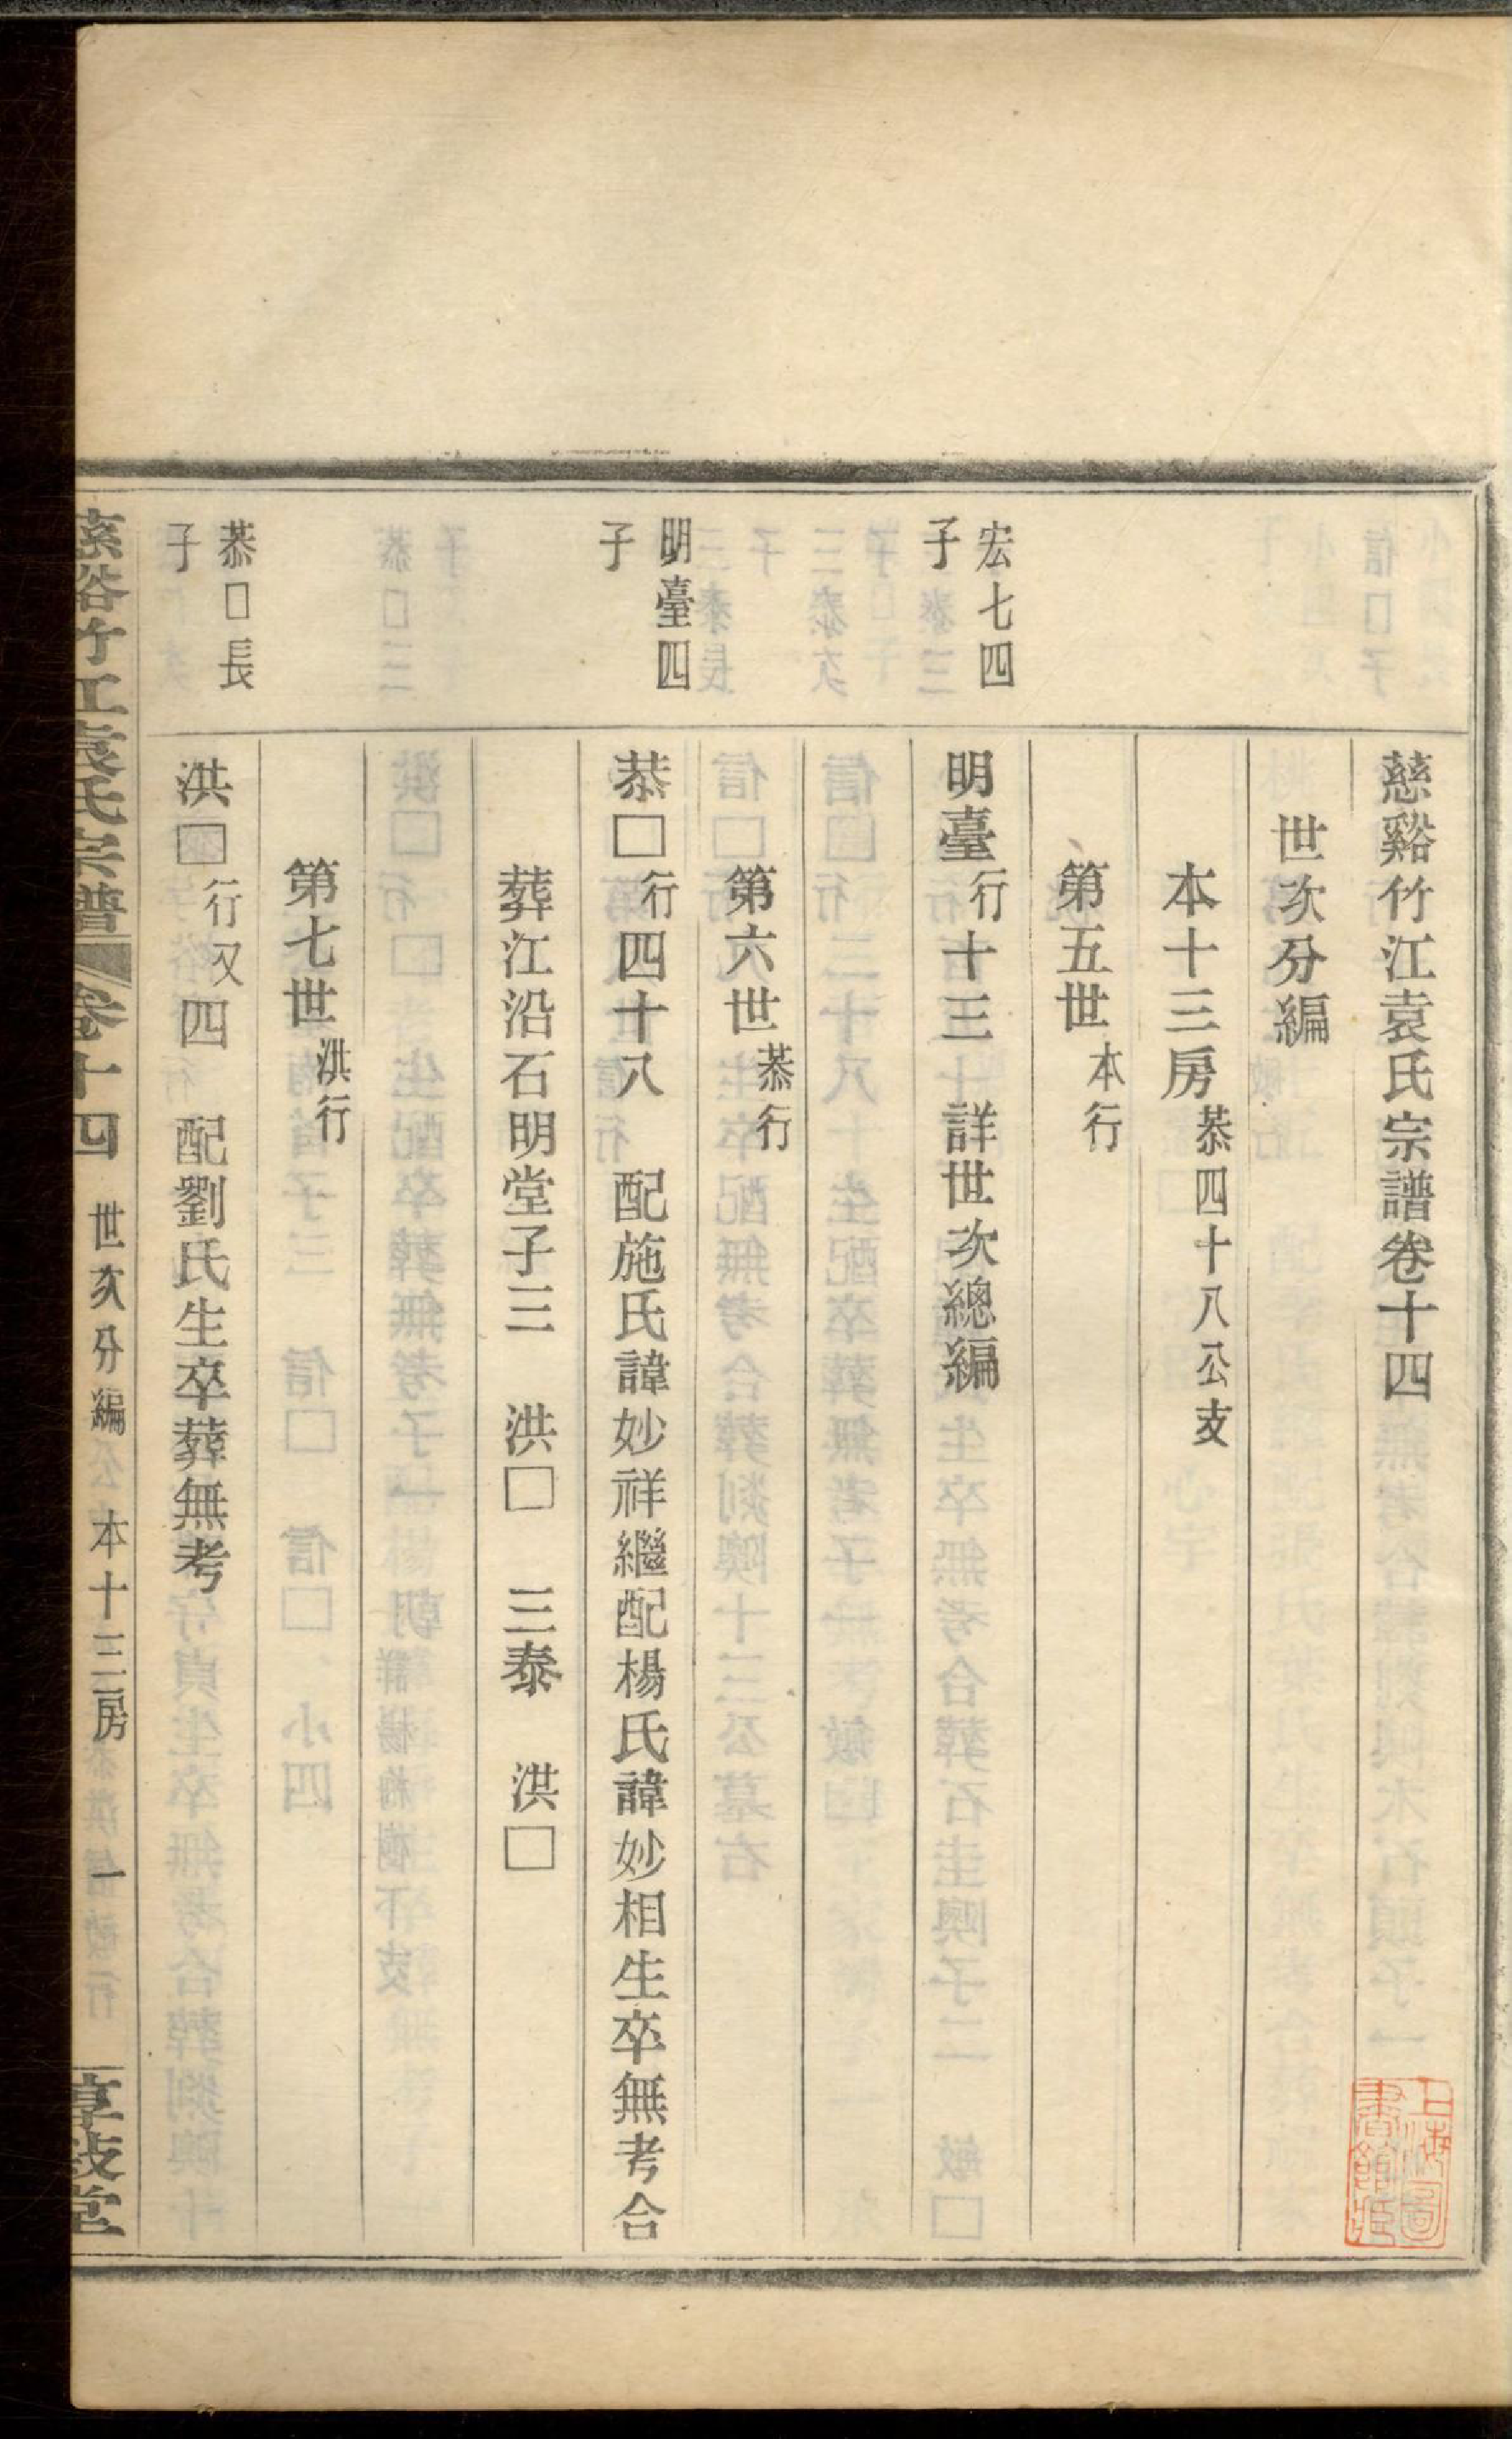 慈谿竹江袁氏宗譜卷十四
世次分編
本十三房恭四十八公支
第五世本行
宏七四子
明臺行十三 詳世次總編
第六世恭行
明臺四子
恭□行四十八 配施氏諱妙祥繼配楊氏諱妙相生卒無考合
葬江沿石明堂子三 洪□ 三泰 洪□
第七世洪行
恭□長子
洪□行又四 配劉氏生卒葬無考
慈谿竹江袁氏宗譜 卷十四 世次分編 本十三房 一
上海圖書館藏